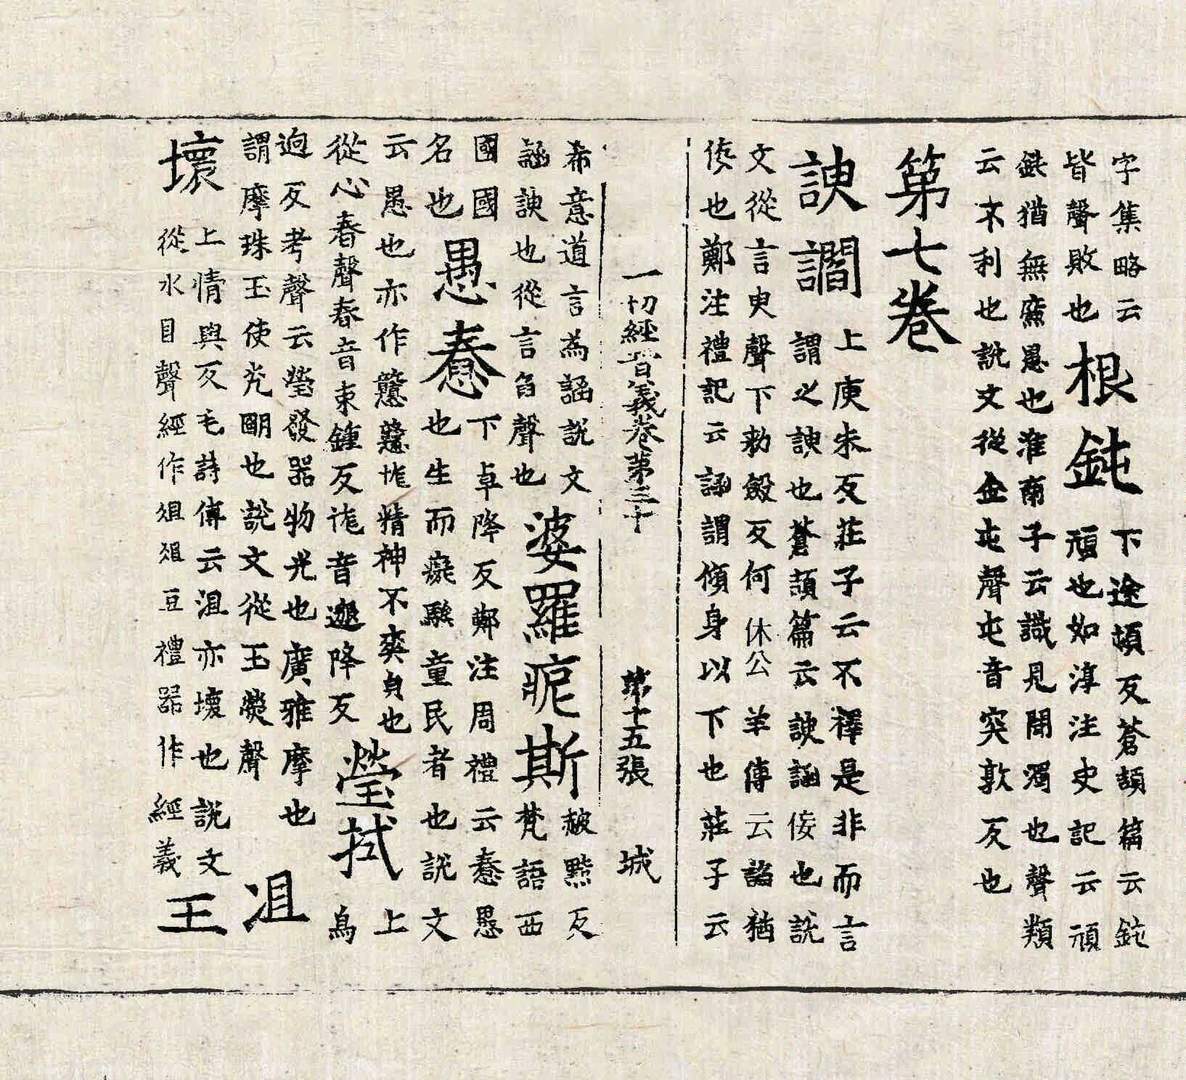 字集略云
皆聲敗也
根鈍
下途頓反蒼頡篇云鈍
頑也如淳注史記云頑
鈍猶無㢘惡也淮南子云識見閒濁也聲類
云不利也說文從金屯聲屯音突敦反也
第七卷
諛讇
上庾朱反莊子云不擇是非而言
謂之諛也蒼頡篇云諛諂佞也說
文從言臾聲下勑殮反何休公羊傳云諂猶
佞也鄭注禮記云諂謂傾身以下也莊子云
一切經音義卷第三十 第十五張 城
希意道言為諂說文
諂諛也從言臽聲也
婆羅痆斯
赧黠反
梵語西
國國
名也
愚惷
下卓降反鄭注周禮云惷愚
也生而癡騃童民者也說文
云愚也亦作戇戇精神不爽皃也
從心舂聲舂音束鍾反音邀降反
瑩拭
上
烏
迥反考聲云瑩發器物光也廣雅摩也
謂摩珠玉使光朙也說文從玉熒聲
沮
壞
上情與反毛詩傳云沮亦壞也說文
從水且聲經作俎俎豆禮器作經義
王